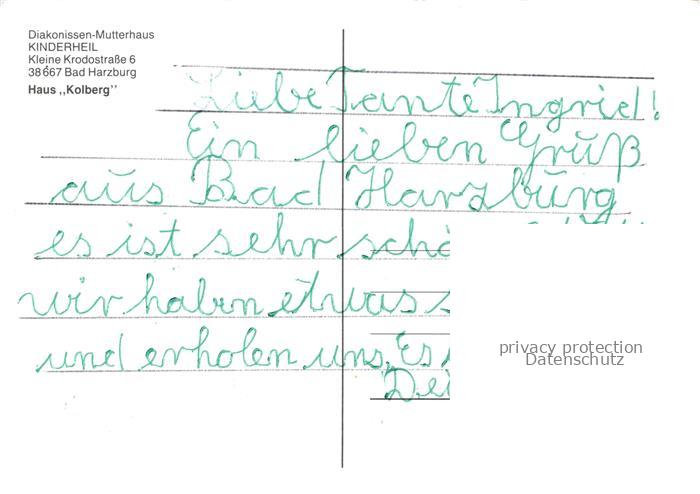 Diakonissen-Mutterhaus
KINDERHEIL
Kleine Krodostraße 6
38667 Bad Harzburg
Haus ,,Kolberg"
Liebe Tante Ingrid!
Ein lieben Gruß
aus Bad Harzburg
es ist sehr schö
wir haben etwas s
und erholen uns. Es
Dei
privacy protection
Datenschutz